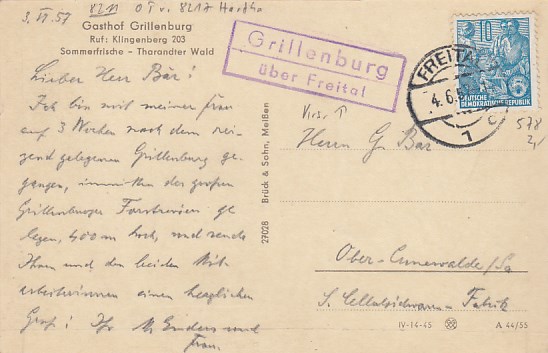 3. VI. 57
8211 OT v. 8217 Hartha
Gasthof Grillenburg
Ruf: Klingenberg 203
Sommerfrische - Tharandter Wald
Grillenburg
über Freital
FREITAL
4.6.5
c
1
10
DEUTSCHE
DEMOKRATISCHE REPUBLIK
578
2,-
Lieber Herr Bär!
Ich bin mit meiner Frau
auf 3 Wochen nach dem rei-
zend gelegenen Grillenburg ge-
gangen, inmitten des großen
Grillenburger Forstreviers ge
legen, 400 m hoch, und sende
Ihnen und den beiden Mit-
arbeiterinnen einen herzlichen
Gruß! Ihr und
Frau.
27028 Brück & Sohn, Meißen
Herrn Bär
Ober-Cunewalde/Sa
Fabrik
IV-14-45
A 44/55